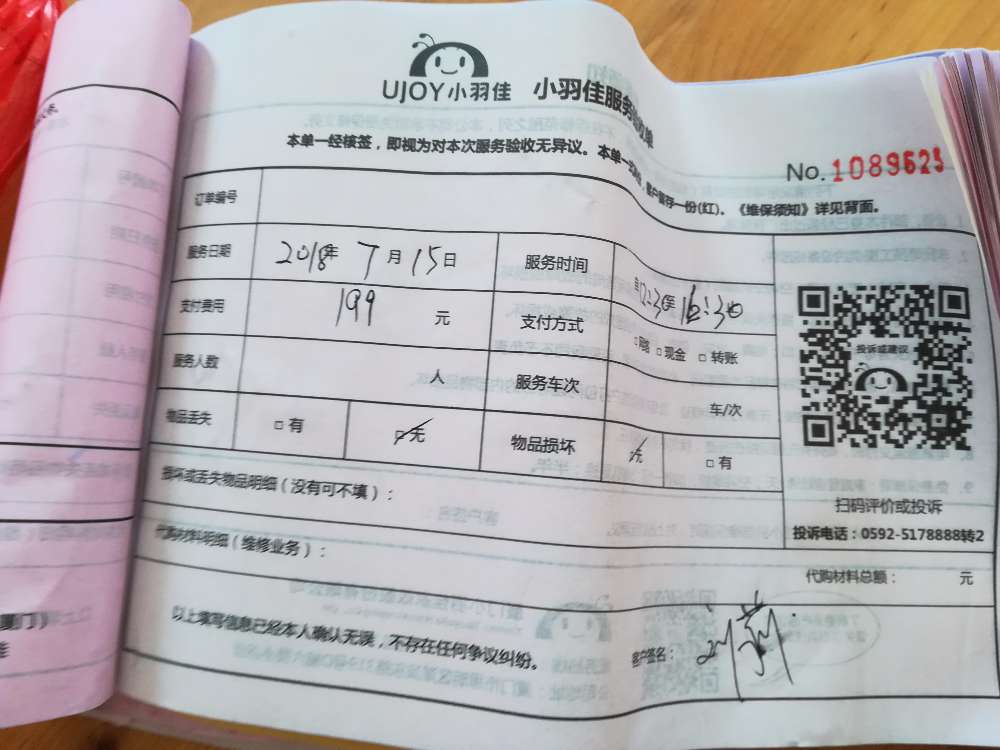 UJOY小羽佳 小羽佳服务验收单
本单一经核签，即视为对本次服务验收无异议。本单一式两份，客户留存一份(红)。《维保须知》详见背面。
No.1089525
订单编号
服务日期 2018年 7月15日 服务时间 12:30至16:30
支付费用 199 元 支付方式 □网络 □现金 □转账
服务人数 人 服务车次 车/次
物品丢失 □有 □无 物品损坏 □无 □有
投诉或建议
扫码评价或投诉
投诉电话：0592-5178888转2
损坏或丢失物品明细（没有可不填）：
代购材料明细（维修业务）：
代购材料总额： 元
以上填写信息已经本人确认无误，不存在任何争议纠纷。
客户签名：